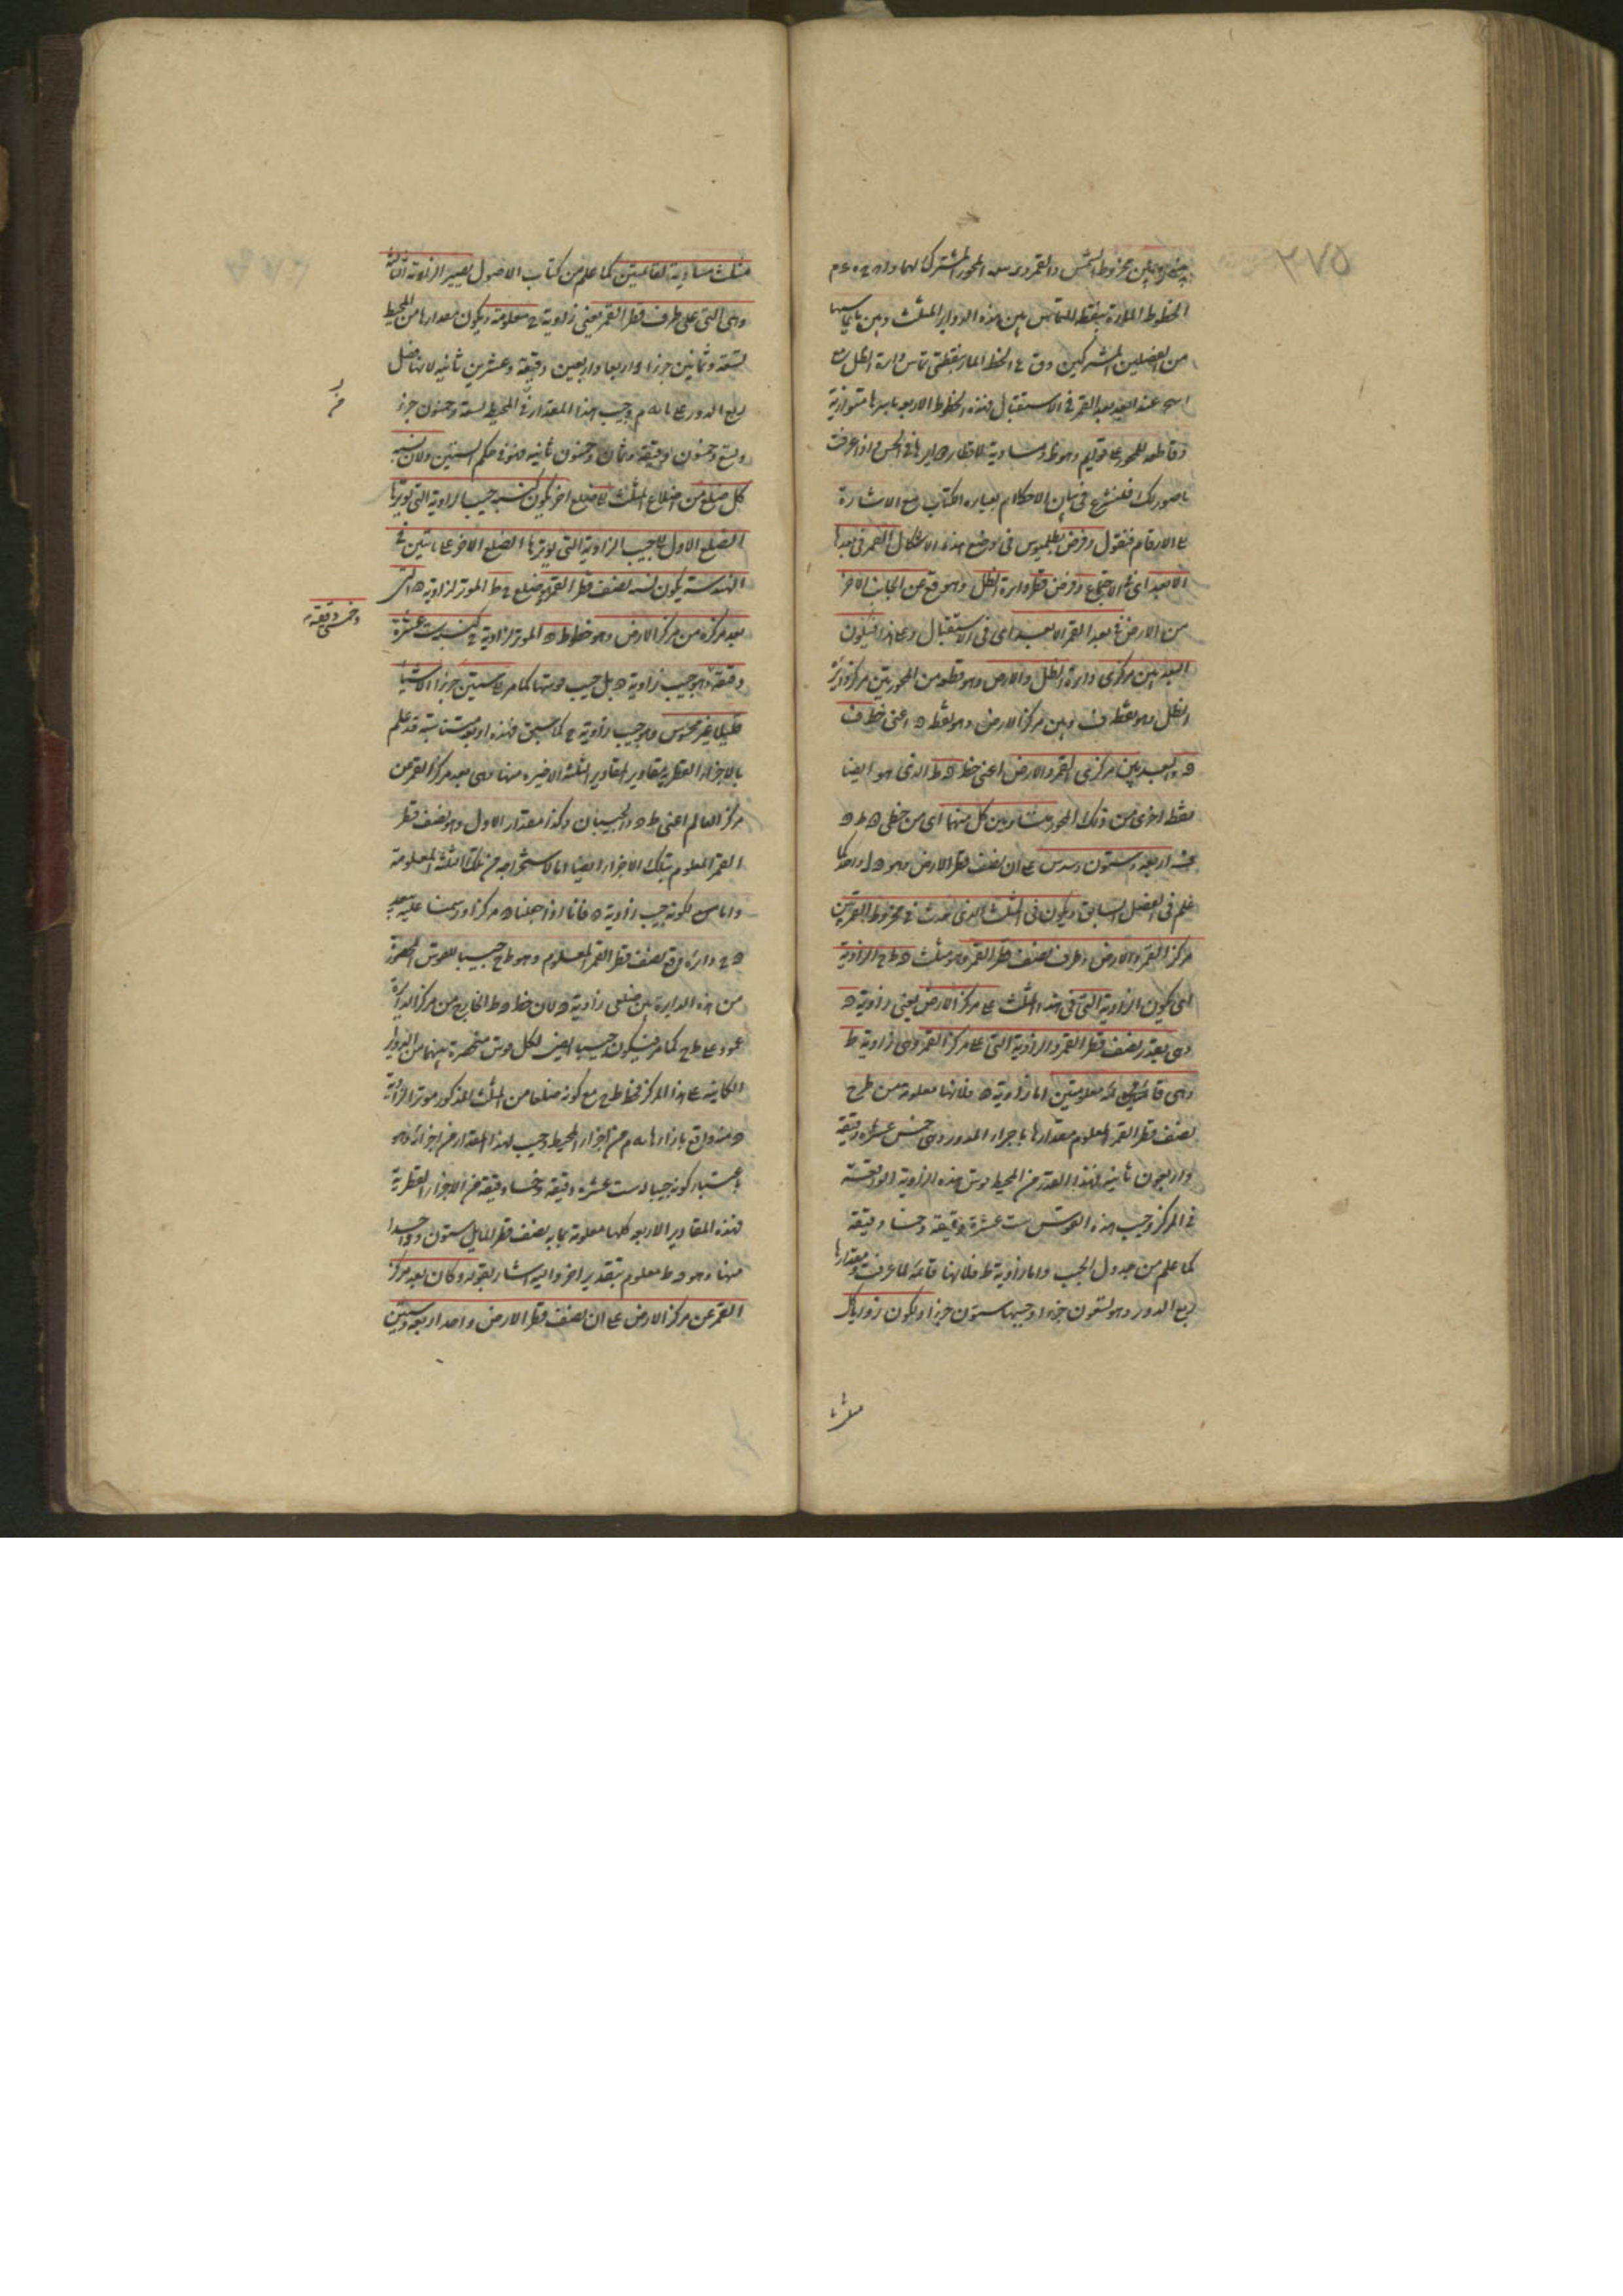 ٣٧٥
مخروط الشمس والقمر المحور المشترك لهما
الخطوط المارة بنقط التماس بين هذه الدواير الثلث وبين
من الفصلين المشتركين و ق ع الخط المار بنقطتى تماس دايرة الظل
عند البعد بعد القمر فى الاستقبال فهذه الخطوط الاربعة باسرها متوازية
وقاطعة للمحور على قوايم وهو ظ ومساوية لاقطار دوايرها فى الحس واذا عرفت
ما صورناك فلنشرع فى بيان الاحكام بعبارة الكتاب مع الاشارة
الى الارقام فنقول وفرض بطلميوس فى موضع هذه الاشكال القمر فى بعده
الابعد اى فى الاجتماع وفرض قطر دايرة الظل وهو ق ع من الجانب الاخر
من الارض فى بعد القمر الابعد اى فى الاستقبال وعلى هذا فيكون
البعد بين مركزى دايرة الظل والارض وهو قطعة من المحور بين مركز دايرة
الظل وهو نقطة ف وبين مركز الارض وهو نقطة ه اعنى خط ف
ه والبعد بين مركزى القمر والارض اعنى خط ه ط الذى هو ايضا
قطعة اخرى من ذلك المحور متساويين كل منهما اى من خطى ه ط ه
ف اربعة وستون وسدس على ان نصف قطر الارض وهو ه ل واحد كما
علم فى الفصل السابق ويكون فى المثلث الذى حدث فى مخروط القمر بين
مركز القمر والارض وطرف نصف قطر القمر وهو مثلث ه ط ح الزاوية
التى يكون الزاوية التى فى هذا المثلث على مركز الارض يعنى زاوية ه
وهى بقدر نصف قطر القمر والزاوية التى على مركز القمر وهى زاوية ط
وهى قائمة معلومتين اما زاوية ه فلانها معلومة من طرح
نصف قطر القمر المعلوم مقدارها باجزاء الدور وهى خمس عشرة دقيقة
واربعون ثانية فهذا القدر من المحيط قوس هذه الزاوية الواقعة
فى المركز وجيب هذه القوس ست عشرة دقيقة وخمسا دقيقة
كما علم من جدول الجيب واما زاوية ط فلانها قائمة لما عرفت ومقدارها
ربع الدور وهو تسعون جزءا وجيبها ستون جزءا ولكون زوايا كل
مثلث
مثلث مساوية لقائمتين كما علم من كتاب الاصول يصير الزاوية الثالثة
وهى التى على طرف قطر القمر يعنى زاوية ح معلومة ويكون مقدارها من المحيط
تسعة وثمانين جزءا واربعا واربعين دقيقة وعشرين ثانية لانها فضل
ربع الدور على ما به م وجيب هذا المقدار فى المحيط تسعة وخمسون جزء
وتسع وخمسون دقيقة وثمان وخمسون ثانية فهو فى حكم الستين ولان نسبة
كل ضلع من اضلاع المثلث الى ضلع اخر يكون كنسبة جيب الزاوية التى يوترها
الضلع الاول الى جيب الزاوية التى يوترها الضلع الاخر على ما تبين فى
الهندسة يكون نسبة نصف قطر القمر وهو ضلع ح ط الموتر لزاوية ه الى
بعد مركزه من مركز الارض وهو خط ط ه الموتر لزاوية ح كنسبة ست عشرة
وخمسى دقيقة
دقيقة وهو جيب زاوية ه بل جيب قوسها كما مر الى ستين جزءا الا شيئا
قليلا غير محسوس وهو جيب زاوية ح كما سبق فهذه اربعة متناسبة قد علم
بالاجزاء القطرية مقادير المقادير الثلثة الاخيرة منها وهى بعد مركز القمر من
مركز العالم اعنى ط ه والجيبان وكذا مقدار الاول وهو نصف قطر
القمر المعلوم بتلك الاجزاء ايضا اما لاستخراجه من تلك الثلثة المعلومة
واما لكونه جيب زاوية ه فانا اذا جعلنا ه مركزا ورسمنا عليه ببعد
ه ح دائرة وقع نصف قطر القمر المعلوم وهو ط ح جيبا للقوس المحصورة
من هذه الدايرة بين ضلعى زاوية ه لان خط ه ط الخارج من مركز الدايرة
عمود على ط ح كما مر فيكون جيب ايضا لكل قوس منحصرة بينهما من الدواير
الكاينة على هذا المركز فخط ط ح مع كونه ضلعا من المثلث المذكور موتر الزاوية
ه منه واقع بازاء ما به م من اجزاء المحيط وجيب لهذا المقدار من اجزائه وهو
باعتبار كونه جيبا له ست عشرة دقيقة وخمسا دقيقة من الاجزاء القطرية
فهذه المقادير الاربعة كلها معلومة بما به نصف قطر المايل ستون وواحد
منها وهو ه ط معلوم بتقدير اخر واليه اشار بقوله وكان بعد مركز
القمر عن مركز الارض على ان نصف قطر الارض واحد اربعة وستين